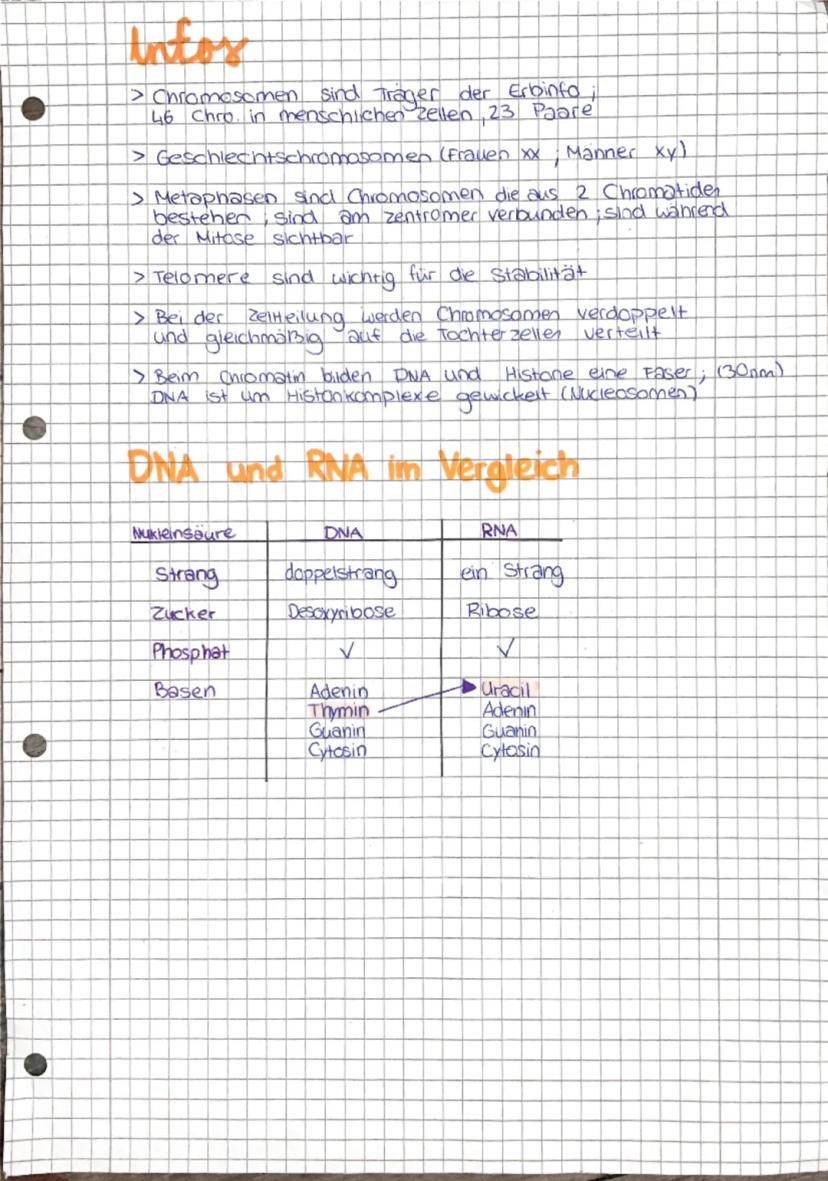 Infos
> Chromosomen sind Träger der Erbinfo ;
46 Chro. in menschlichen Zellen , 23 Paare
> Geschlechtschromosomen (Frauen xx ; Männer xy)
> Metaphasen sind Chromosomen die aus 2 Chromatiden
bestehen ; sind am Zentromer verbunden ; sind während
der Mitose sichtbar
> Telomere sind wichtig für die Stabilität
> Bei der Zellteilung werden Chromosomen verdoppelt
und gleichmäßig auf die Tochterzellen verteilt
> Beim Chromatin bilden DNA und Histone eine Faser ; (30nm)
DNA ist um Histonkomplexe gewickelt (Nucleosomen)
DNA und RNA im Vergleich
Nukleinsäure DNA RNA
Strang doppelstrang ein Strang
Zucker Desoxyribose Ribose
Phosphat ✓ ✓
Basen Adenin Uracil
Thymin Adenin
Guanin Guanin
Cytosin Cytosin